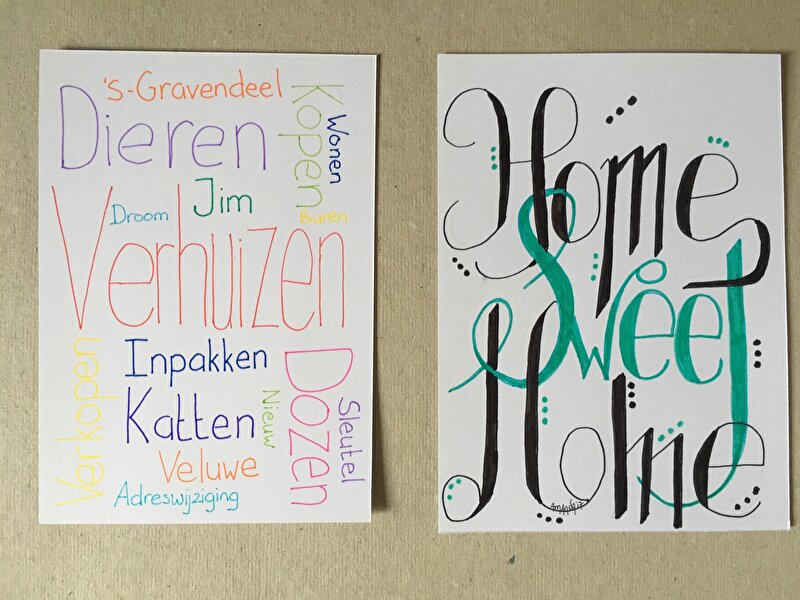 's-Gravendeel
Dieren
Kopen
Wonen
Jim
Droom
Buren
Verhuizen
Verkopen
Inpakken
Katten
Nieuw
Dozen
Sleutel
Veluwe
Adreswijziging
Home
Sweet
Home